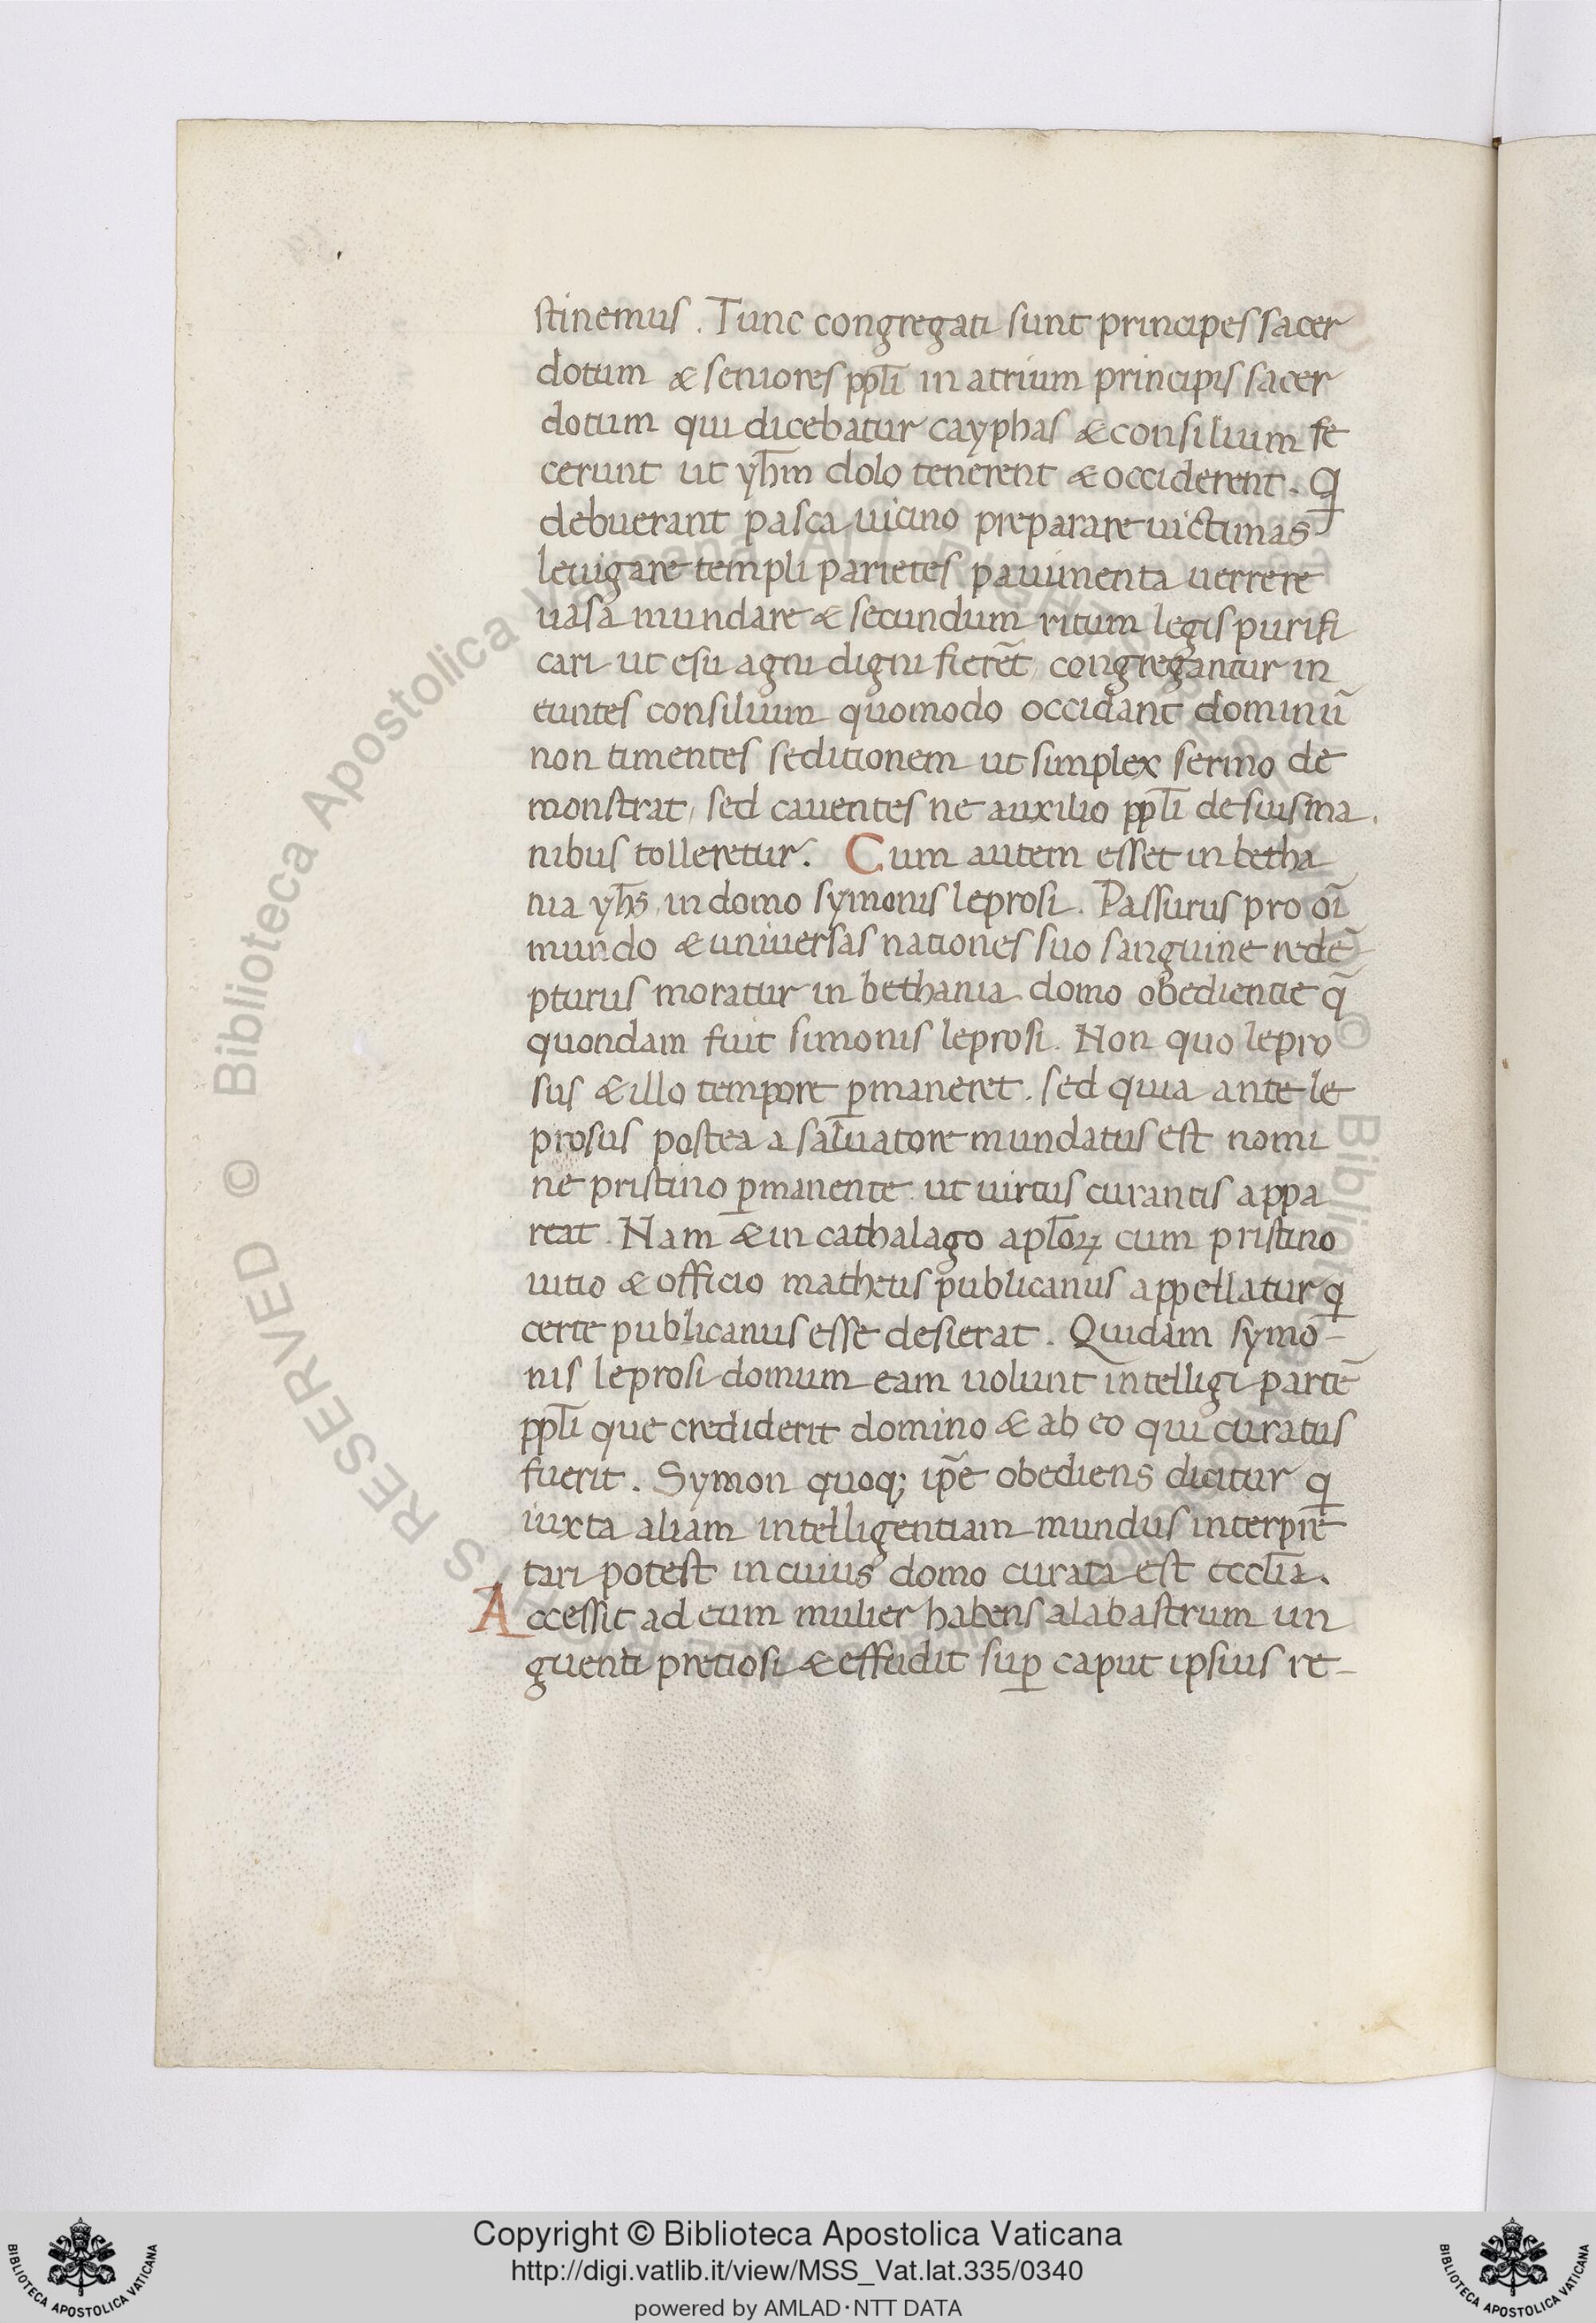 stinemus. Tunc congregati sunt principes sacer
dotum & seniores ppl̄i in atrium principis sacer
dotum qui dicebatur cayphas & consilium fe
cerunt ut yh̄m dolo tenerent & occiderent. Q̲
debuerant pasca uicino preparare uictimas
leuigare templi parietes pauimenta uerrere
uasa mundare & secundum ritum legis purifi
cari ut esu agni digni fierēt, congregantur in
euntes consilium quomodo occidant dominū
non timentes seditionem ut simplex sermo de
monstrat, sed cauentes ne auxilio ppl̄i de suis ma.
nibus tolleretur. Cum autem esset in betha
nia yh̄s in domo symonis leprosi. Passurus pro oī
mundo & universas nationes suo sanguine redē
pturus moratur in bethania domo obedientie q̄
quondam fuit simonis leprosi. Non quo lepro
sus & illo tempore ꝑmaneret. sed quia ante le
prosus postea a saluatore mundatus est nomi
ne pristino ꝑmanente ut uirtus curantis appa
reat. Nam & in cathalago apl̄oꝝ cum pristino
uitio & officio matheus publicanus appellatur q̲
certe publicanus esse desierat. Quidam symo-
nis leprosi domum eam uolunt intelligi partē
ppl̄i que crediderit domino & ab eo qui curatus
fuerit. Symon quoq; ip̄e obediens dicitur q̲
iuxta aliam intelligentiam mundus interpre
tari potest in cuius domo curata est eccl̄ia.
Accessit ad eum mulier habens alabastrum un
guenti pretiosi & effudit suꝑ caput ipsius re-
© Biblioteca Apostolica Vaticana
RESERVED
Copyright © Biblioteca Apostolica Vaticana
http://digi.vatlib.it/view/MSS_Vat.lat.335/0340
powered by AMLAD·NTT DATA
BIBLIOTECA APOSTOLICA VATICANA
BIBLIOTECA APOSTOLICA VATICANA